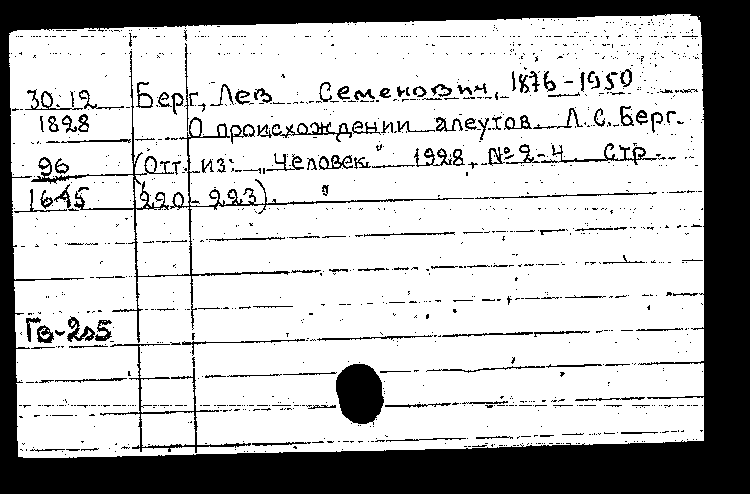 30.12 Берг, Лев Семенович, 1876-1950
1828 О происхождении алеутов. Л.С. Берг.
96 (Отт. из: „Человек" 1928, №2-4. Стр.
1645 220-223).
Гв-2в5